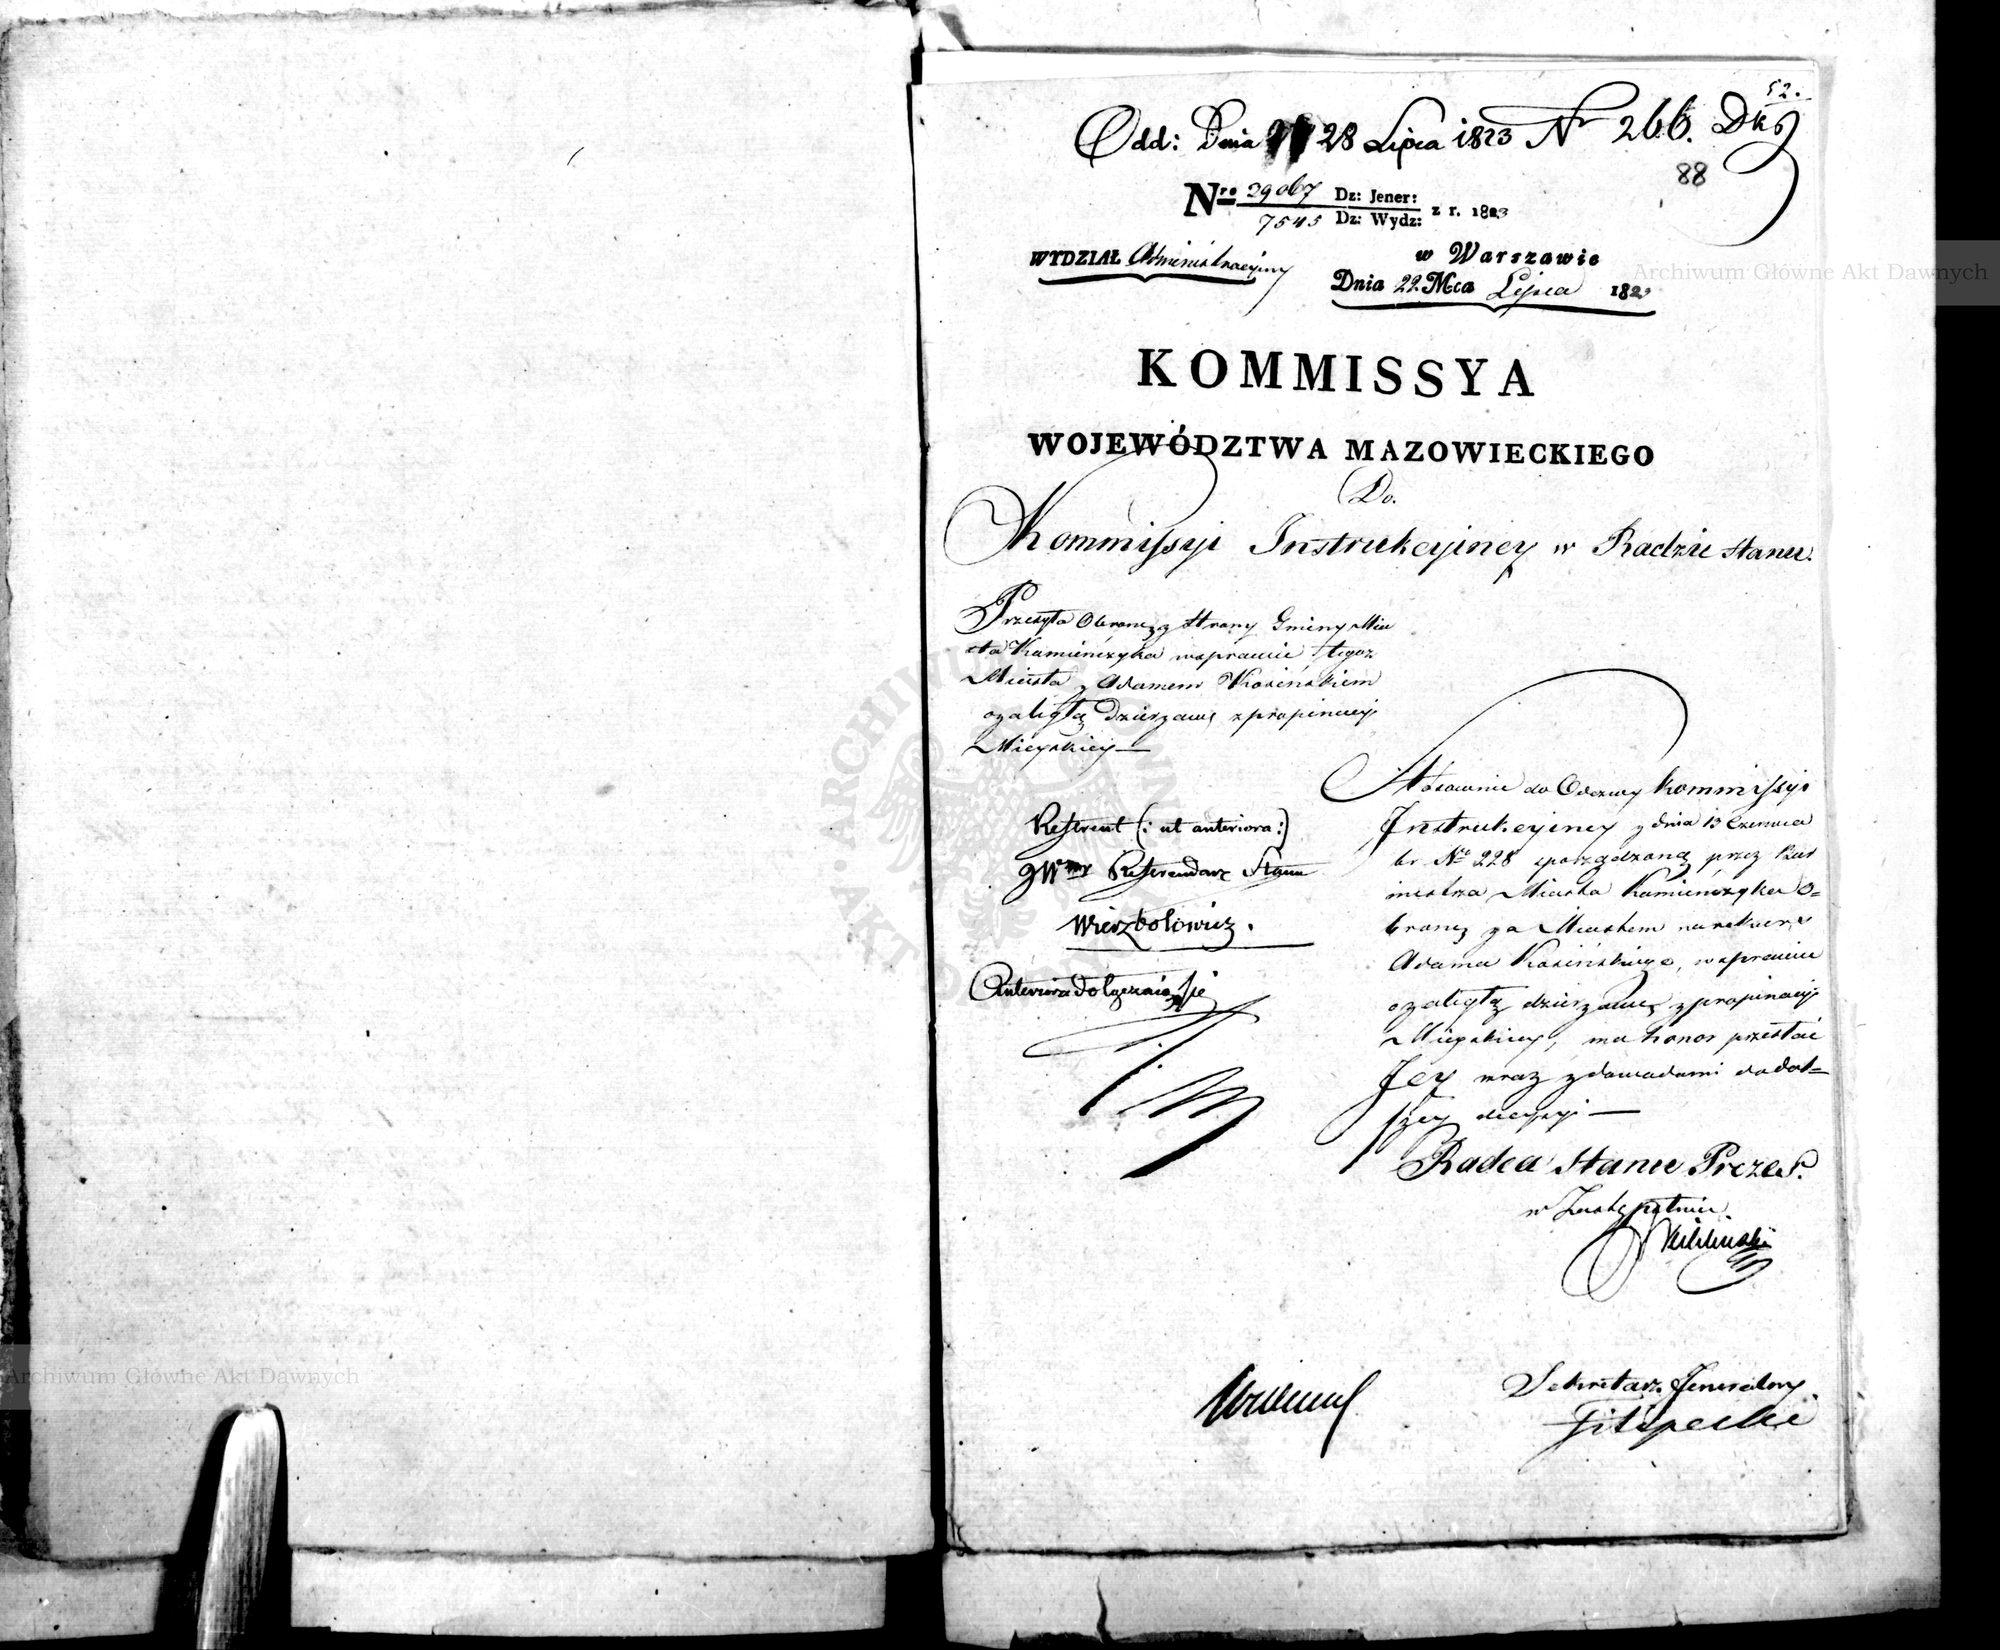 52.
Odd: Dnia 28 Lipca 1823 Nr 266. Dks
88
Nro 29067 Dz: Jener:
7545 Dz: Wydz: z r. 1823
WYDZIAŁ Administracyiny
w Warszawie
Dnia 22. Mca Lipca 1823
KOMMISSYA
WOJEWÓDZTWA MAZOWIECKIEGO
Do.
Kommissyi Instrukcyiney w Radzie Stanu.
Przesyła Obronę z Strony Gminy Mia
sta Kamieńczyka w sprawie tegoż
Miasta z Adamem Kosińskiem
o zaległą dzierzawę z propinacyi
Mieyskiey —
Referent (: ut anteriora :)
JWny Referendarz Stanu
Wierzbołowicz.
Anteriora dołączaią się
Stosownie do Odezwy Kommissyi
Instrukcyiney z dnia 13 Czerwca
br No 228 sporządzoną przez Bur
mistrza Miasta Kamieńczyka O=
bronę za Miastem na rekurs
Adama Kosińskiego, w sprawie
o zaległą dzierzawę z propinacyi
Mieyskiey, ma honor przesłać
Jey wraz z dowodami do dal=
szey decyzyi —
Radca Stanu Prezes.
w Zastępstwie
Sekretarz Jeneralny
Filipecki
Archiwum Główne Akt Dawnych
Archiwum Główne Akt Dawnych